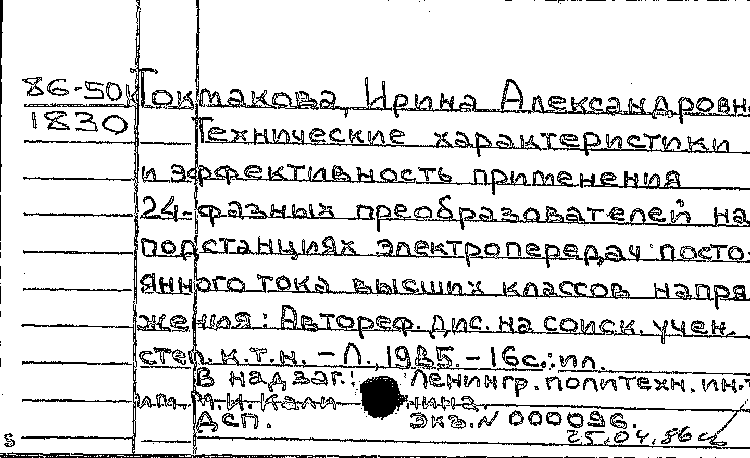 86-50к Токмакова, Ирина Александровн
1830 Технические характеристики
и эффективность применения
24-фазных преобразователей на
подстанциях электропередач посто-
янного тока высших классов напря
жения: Автореф. дис. на соиск. учен.
степ. к.т.н. - Л., 1985. - 16с.: ил.
В надзаг.: Ленингр. политехн. ин-т
им. М.И. Калинина.
ДСП. Экз. N 000096.
25.04.86
s